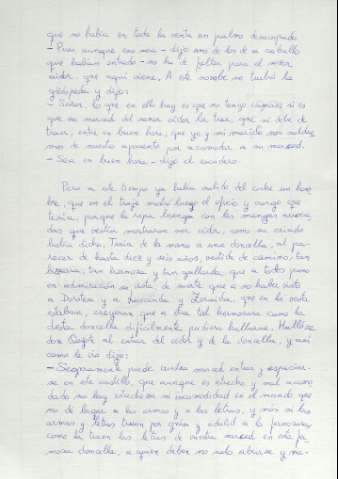 que no había en toda la venta un palmo desocupado
- Pues aunque eso sea - dijo uno de los de a caballo
que habían entrado - no ha de faltar para el señor
oidor, que aquí viene. A este nombre se turbó la
güéspeda y dijo:
- Señor, lo que en ello hay es que no tengo camas; si es
que su merced del señor oidor la trae, que sí debe de
traer, entre en buen hora, que yo y mi marido nos saldre
mos de nuestro aposento por acomodar a su merced.
- Sea en buen hora - dijo el escudero

Pero a este tiempo ya había salido del coche un hom
bre, que en el traje mostró luego el oficio y cargo que
tenía, porque la ropa luenga con las mangas arroca
das que vestía mostraron ser oidor, como su criado
había dicho. Traía de la mano a una doncella, al pa-
recer de hasta diez y seis años, vestida de camino, tan
bizarra, tan hermosa y tan gallarda, que a todos puso
en admiración su vista; de suerte que a no haber visto
a Dorotea y a Luscinda y Zoraida, que en la venta
estaban, creyeran que otra tal hermosura como la
desta doncella difícilmente pudiera hallarse. Hallóse
don Quijote al entrar del oidor y de la doncella, y así
como le vio dijo:
- Seguramente puede vuestra merced entrar y espaciar-
se en este castillo, que aunque es estrecho y mal acomo
dado no hay estrecheza ni incomodidad en el mundo que
no dé lugar a las armas y a las letras, y más si las
armas y letras traen por guía y adalid a la fermosura
como la traen las letras de vuestra merced en esta fer
mosa doncella, a quien deben no solo abrirse y ma-